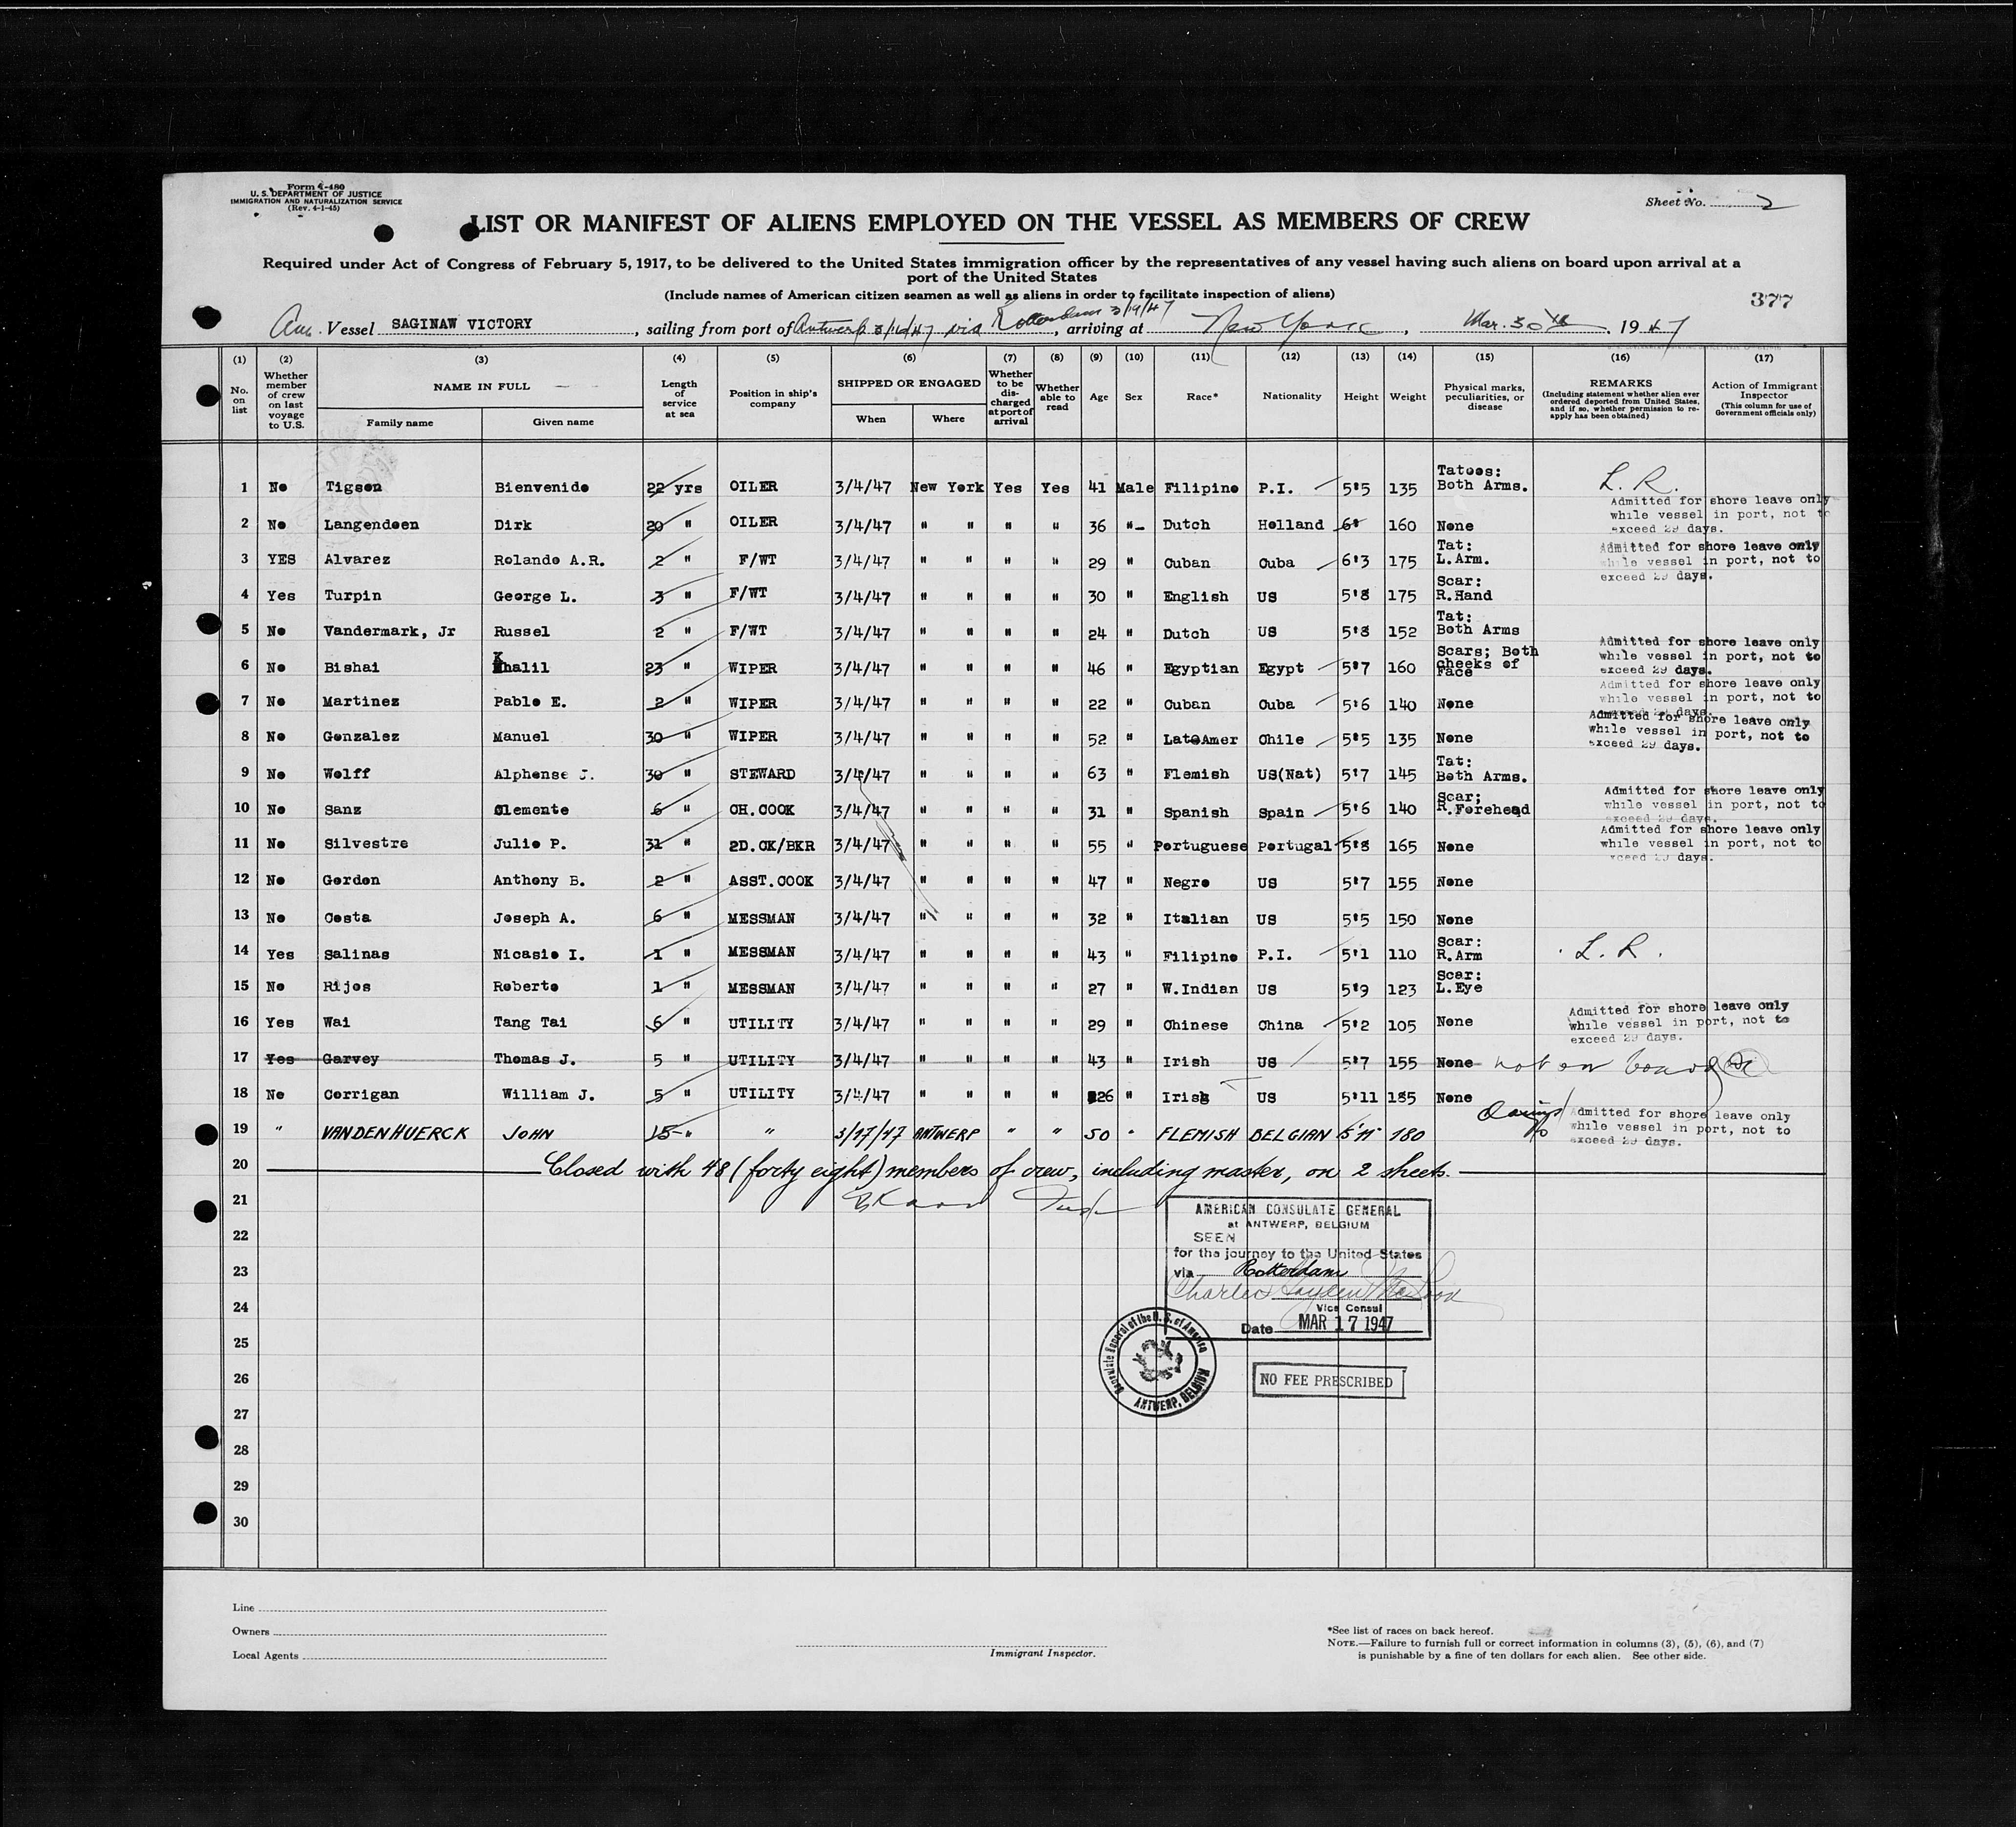 Form I-480
U. S. DEPARTMENT OF JUSTICE
IMMIGRATION AND NATURALIZATION SERVICE
(Rev. 4-1-45)
Sheet No. 2
LIST OR MANIFEST OF ALIENS EMPLOYED ON THE VESSEL AS MEMBERS OF CREW
Required under Act of Congress of February 5, 1917, to be delivered to the United States immigration officer by the representatives of any vessel having such aliens on board upon arrival at a
port of the United States
(Include names of American citizen seamen as well as aliens in order to facilitate inspection of aliens)
377
Am. Vessel SAGINAW VICTORY, sailing from port of Antwerp 3/16/47 via Rotterdam 3/19/47, arriving at New York, Mar. 30th, 1947
(1) (2) (3) (4) (5) (6) (7) (8) (9) (10) (11) (12) (13) (14) (15) (16) (17)
No. on list
Whether member of crew on last voyage to U.S.
NAME IN FULL
Family name Given name
Length of service at sea
Position in ship's company
SHIPPED OR ENGAGED
When Where
Whether to be discharged at port of arrival
Whether able to read
Age
Sex
Race*
Nationality
Height
Weight
Physical marks, peculiarities, or disease
REMARKS
(Including statement whether alien ever ordered deported from United States, and if so, whether permission to reapply has been obtained)
Action of Immigrant Inspector
(This column for use of Government officials only)
1 No Tigson Bienvenido 22 yrs OILER 3/4/47 New York Yes Yes 41 Male Filipino P.I. 5'5 135 Tatoos: Both Arms. L. R.
2 No Langendoen Dirk 20 " OILER 3/4/47 " " " " 36 " Dutch Holland 6' 160 None Admitted for shore leave only while vessel in port, not to exceed 29 days.
3 YES Alvarez Rolando A.R. 2 " F/WT 3/4/47 " " " " 29 " Cuban Cuba 6'3 175 Tat: L.Arm. Admitted for shore leave only while vessel in port, not to exceed 29 days.
4 Yes Turpin George L. 3 " F/WT 3/4/47 " " " " 30 " English US 5'8 175 Scar: R.Hand
5 No Vandermark, Jr Russel 2 " F/WT 3/4/47 " " " " 24 " Dutch US 5'8 152 Tat: Both Arms
6 No Bishai Khalil 23 " WIPER 3/4/47 " " " " 46 " Egyptian Egypt 5'7 160 Scars; Both cheeks of Face Admitted for shore leave only while vessel in port, not to exceed 29 days.
7 No Martinez Pablo E. 2 " WIPER 3/4/47 " " " " 22 " Cuban Cuba 5'6 140 None Admitted for shore leave only while vessel in port, not to exceed 29 days.
8 No Gonzalez Manuel 30 " WIPER 3/4/47 " " " " 52 " LatoAmer Chile 5'5 135 None Admitted for shore leave only while vessel in port, not to exceed 29 days.
9 No Wolff Alphonse J. 30 " STEWARD 3/4/47 " " " " 63 " Flemish US(Nat) 5'7 145 Tat: Both Arms.
10 No Sanz Clemente 6 " CH. COOK 3/4/47 " " " " 31 " Spanish Spain 5'6 140 Scar; R.Forehead Admitted for shore leave only while vessel in port, not to exceed 29 days.
11 No Silvestre Julio P. 31 " 2D. CK/BKR 3/4/47 " " " " 55 " Portuguese Portugal 5'8 165 None Admitted for shore leave only while vessel in port, not to exceed 29 days.
12 No Gordon Anthony B. 2 " ASST. COOK 3/4/47 " " " " 47 " Negro US 5'7 155 None
13 No Costa Joseph A. 6 " MESSMAN 3/4/47 " " " " 32 " Italian US 5'5 150 None
14 Yes Salinas Nicasio I. 1 " MESSMAN 3/4/47 " " " " 43 " Filipino P.I. 5'1 110 Scar: R.Arm L. R.
15 No Rijos Roberto 1 " MESSMAN 3/4/47 " " " " 27 " W.Indian US 5'9 123 Scar: L.Eye
16 Yes Wai Tang Tai 6 " UTILITY 3/4/47 " " " " 29 " Chinese China 5'2 105 None Admitted for shore leave only while vessel in port, not to exceed 29 days.
17 Yes Garvey Thomas J. 5 " UTILITY 3/4/47 " " " " 43 " Irish US 5'7 155 None not on board
18 No Corrigan William J. 5 " UTILITY 3/4/47 " " " " 26 " Irish US 5'11 185 None
19 " VANDENHUERCK JOHN 15 " " 3/17/47 ANTWERP " " 50 " FLEMISH BELGIAN 5'11" 180 Admitted for shore leave only while vessel in port, not to exceed 29 days.
20 Closed with 48 (forty eight) members of crew, including master, on 2 sheets.
21
22
23
24
25
26
27
28
29
30
AMERICAN CONSULATE GENERAL
at ANTWERP, BELGIUM
SEEN
for the journey to the United States
via Rotterdam
Charles
Vice Consul
Date MAR 17 1947
Consulate General of the U. S. of America
ANTWERP, BELGIUM
NO FEE PRESCRIBED
Line
Owners
Local Agents
Immigrant Inspector.
*See list of races on back hereof.
NOTE.—Failure to furnish full or correct information in columns (3), (5), (6), and (7)
is punishable by a fine of ten dollars for each alien. See other side.